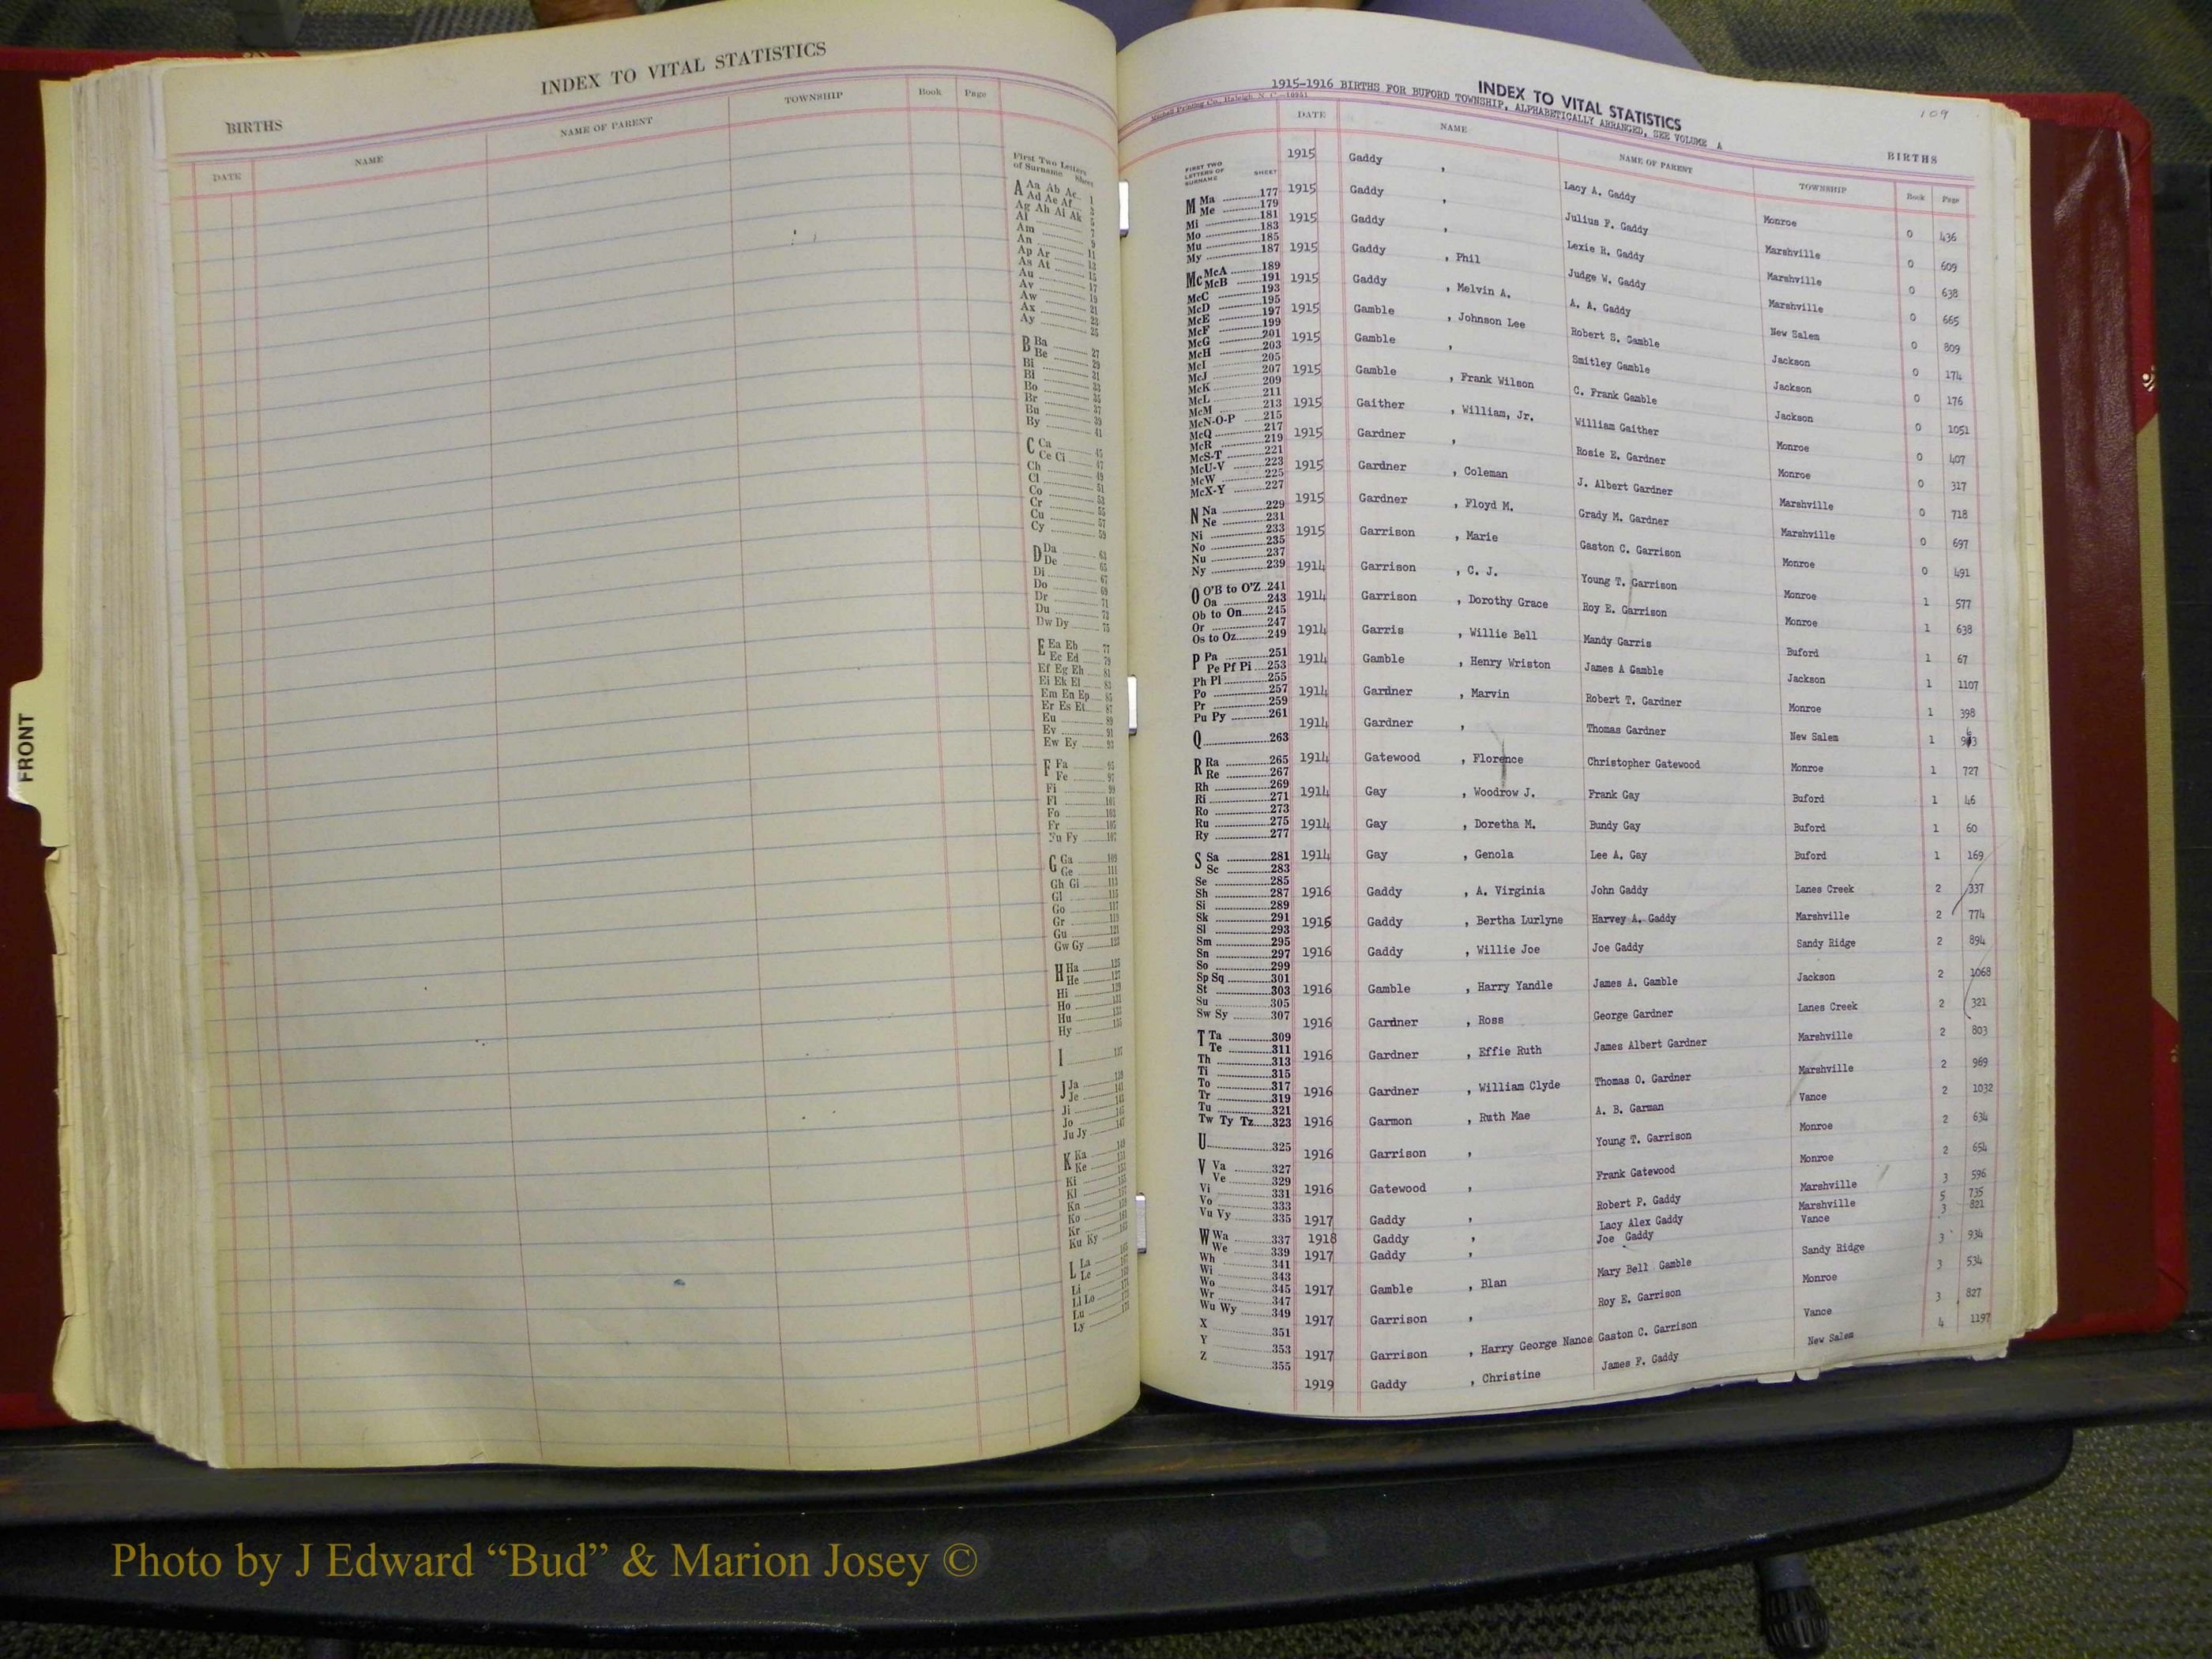 INDEX TO VITAL STATISTICS
BIRTHS
DATE NAME NAME OF PARENT TOWNSHIP Book Page
First Two Letters
of Surname Sheet
A Aa Ab Ac 1
Ad Ae Af 3
Ag Ah Ai Ak 5
Al 7
Am 9
An 11
Ap Ar 13
As At 15
Au 17
Av 19
Aw 21
Ax 23
Ay 25
B Ba 27
Be 29
Bi 31
Bl 33
Bo 35
Br 37
Bu 39
By 41
C Ca 45
Ce Ci 47
Ch 49
Cl 51
Co 53
Cr 55
Cu 57
Cy 59
D Da 63
De 65
Di 67
Do 69
Dr 71
Du 73
Dw Dy 75
E Ea Eb 77
Ec Ed 79
Ef Eg Eh 81
Ei Ek El 83
Em En Ep 85
Er Es Et 87
Eu 89
Ev 91
Ew Ey 93
F Fa 95
Fe 97
Fi 99
Fl 101
Fo 103
Fr 105
Fu Fy 107
G Ga 109
Ge 111
Gh Gi 113
Gl 115
Go 117
Gr 119
Gu 121
Gw Gy 123
H Ha 125
He 127
Hi 129
Ho 131
Hu 133
Hy 135
I 137
J Ja 139
Je 141
Ji 143
Jo 145
Ju Jy 147
K Ka 149
Ke 151
Ki
Kl
Kn
Ko
Kr
Ku Ky
L La
Le
Li
Ll Lo
Lu
Ly
FRONT
109
INDEX TO VITAL STATISTICS
1915-1916 BIRTHS FOR BUFORD TOWNSHIP, ALPHABETICALLY ARRANGED, SEE VOLUME A
Mitchell Printing Co., Raleigh, N. C.—10951
BIRTHS
DATE NAME NAME OF PARENT TOWNSHIP Book Page
FIRST TWO
LETTERS OF
SURNAME SHEET
M Ma 177
Me 179
Mi 181
Mo 183
Mu 185
My 187
Mc McA 189
McB 191
McC 193
McD 195
McE 197
McF 199
McG 201
McH 203
McI 205
McJ 207
McK 209
McL 211
McM 213
McN-O-P 215
McQ 217
McR 219
McS-T 221
McU-V 223
McW 225
McX-Y 227
N Na 229
Ne 231
Ni 233
No 235
Nu 237
Ny 239
O O'B to O'Z 241
Oa 243
Ob to On 245
Or 247
Os to Oz 249
P Pa 251
Pe Pf Pi 253
Ph Pl 255
Po 257
Pr 259
Pu Py 261
Q 263
R Ra 265
Re 267
Rh 269
Ri 271
Ro 273
Ru 275
Ry 277
S Sa 281
Sc 283
Se 285
Sh 287
Si 289
Sk 291
Sl 293
Sm 295
Sn 297
So 299
Sp Sq 301
St 303
Su 305
Sw Sy 307
T Ta 309
Te 311
Th 313
Ti 315
To 317
Tr 319
Tu 321
Tw Ty Tz 323
U 325
V Va 327
Ve 329
Vi 331
Vo 333
Vu Vy 335
W Wa 337
We 339
Wh 341
Wi 343
Wo 345
Wr 347
Wu Wy 349
X 351
Y 353
Z 355
1915 Gaddy , Lacy A. Gaddy Monroe 0 436
1915 Gaddy , Julius F. Gaddy Marshville 0 609
1915 Gaddy , Lexie R. Gaddy Marshville 0 638
1915 Gaddy , Phil Judge W. Gaddy Marshville 0 665
1915 Gaddy , Melvin A. A. A. Gaddy New Salem 0 809
1915 Gamble , Johnson Lee Robert S. Gamble Jackson 0 174
1915 Gamble , Smitley Gamble Jackson 0 176
1915 Gamble , Frank Wilson C. Frank Gamble Jackson 0 1051
1915 Gaither , William, Jr. William Gaither Monroe 0 407
1915 Gardner , Rosie E. Gardner Monroe 0 317
1915 Gardner , Coleman J. Albert Gardner Marshville 0 718
1915 Gardner , Floyd M. Grady M. Gardner Marshville 0 697
1915 Garrison , Marie Gaston C. Garrison Monroe 0 491
1914 Garrison , C. J. Young T. Garrison Monroe 1 577
1914 Garrison , Dorothy Grace Roy E. Garrison Monroe 1 638
1914 Garris , Willie Bell Mandy Garris Buford 1 67
1914 Gamble , Henry Wriston James A Gamble Jackson 1 1107
1914 Gardner , Marvin Robert T. Gardner Monroe 1 398
1914 Gardner , Thomas Gardner New Salem 1
1914 Gatewood , Florence Christopher Gatewood Monroe 1 727
1914 Gay , Woodrow J. Frank Gay Buford 1 46
1914 Gay , Doretha M. Bundy Gay Buford 1 60
1914 Gay , Genola Lee A. Gay Buford 1 169
1916 Gaddy , A. Virginia John Gaddy Lanes Creek 2 337
1916 Gaddy , Bertha Lurlyne Harvey A. Gaddy Marshville 2 774
1916 Gaddy , Willie Joe Joe Gaddy Sandy Ridge 2 894
1916 Gamble , Harry Yandle James A. Gamble Jackson 2 1068
1916 Gardner , Ross George Gardner Lanes Creek 2 321
1916 Gardner , Effie Ruth James Albert Gardner Marshville 2 803
1916 Gardner , William Clyde Thomas O. Gardner Marshville 2 969
1916 Garmon , Ruth Mae A. B. Garman Vance 2 1032
1916 Garrison , Young T. Garrison Monroe 2 634
1916 Gatewood , Frank Gatewood Monroe 2 654
1917 Gaddy , Robert P. Gaddy Marshville 3 596
1918 Gaddy , Lacy Alex Gaddy Marshville 5 735
1917 Gaddy , Joe Gaddy Vance 3 821
1917 Gamble , Blan Mary Bell Gamble Sandy Ridge 3 934
1917 Garrison , Roy E. Garrison Monroe 3 534
1917 Garrison , Harry George Nance Gaston C. Garrison Vance 3 827
1919 Gaddy , Christine James F. Gaddy New Salem 4 1197
Photo by J Edward “Bud” & Marion Josey ©